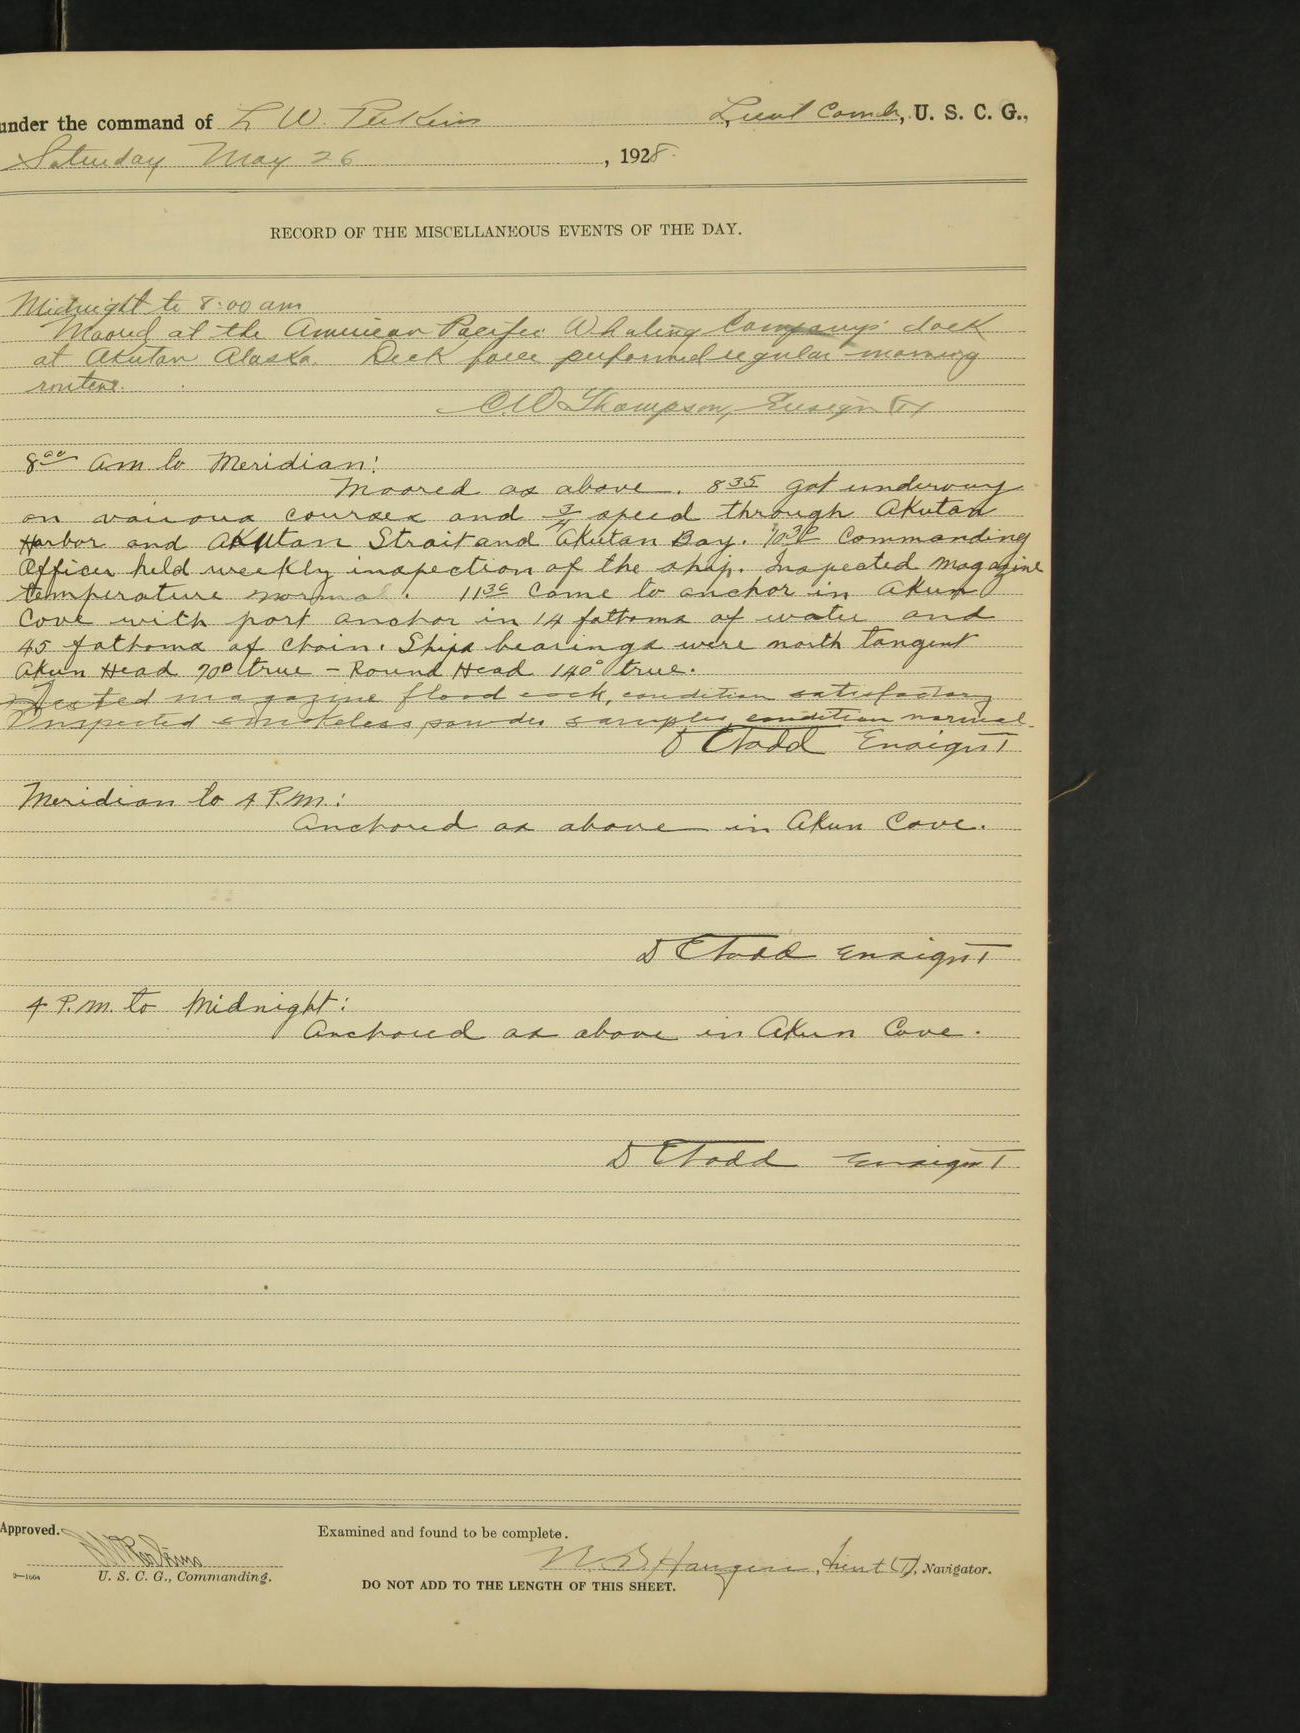 under the command of L W. Perkins Lieut Comdr, U. S. C. G.,
Saturday May 26, 1928.
RECORD OF THE MISCELLANEOUS EVENTS OF THE DAY.
Midnight to 8:00 am
Moored at the American Pacific Whaling Company's dock
at Akutan Alaska. Deck force performed regular morning
routine.
C.W. Thompson, Ensign (T)
8 00 am to Meridian:
Moored as above. 8 35 got underway
on various courses and 3/4 speed through Akutan
Harbor and Akutan Strait and Akutan Bay. 10 30 Commanding
Officer held weekly inspection of the ship. Inspected magazine
temperature normal. 11 36 Came to anchor in Akun
Cove with port anchor in 14 fathoms of water and
45 fathoms of chain. Ships bearings were north tangent
Akun Head 70° true - Round Head 140° true.
Tested magazine flood cock, condition satisfactory
Inspected smokeless powder samples, condition normal.
D C Todd Ensign T
Meridian to 4 P.M.:
Anchored as above in Akun Cove.
D C Todd Ensign T
4 P.M. to Midnight:
Anchored as above in Akun Cove.
D C Todd Ensign T
Approved. Examined and found to be complete.
Perkins Lieut (T), Navigator.
2—1664 U. S. C. G., Commanding.
DO NOT ADD TO THE LENGTH OF THIS SHEET.